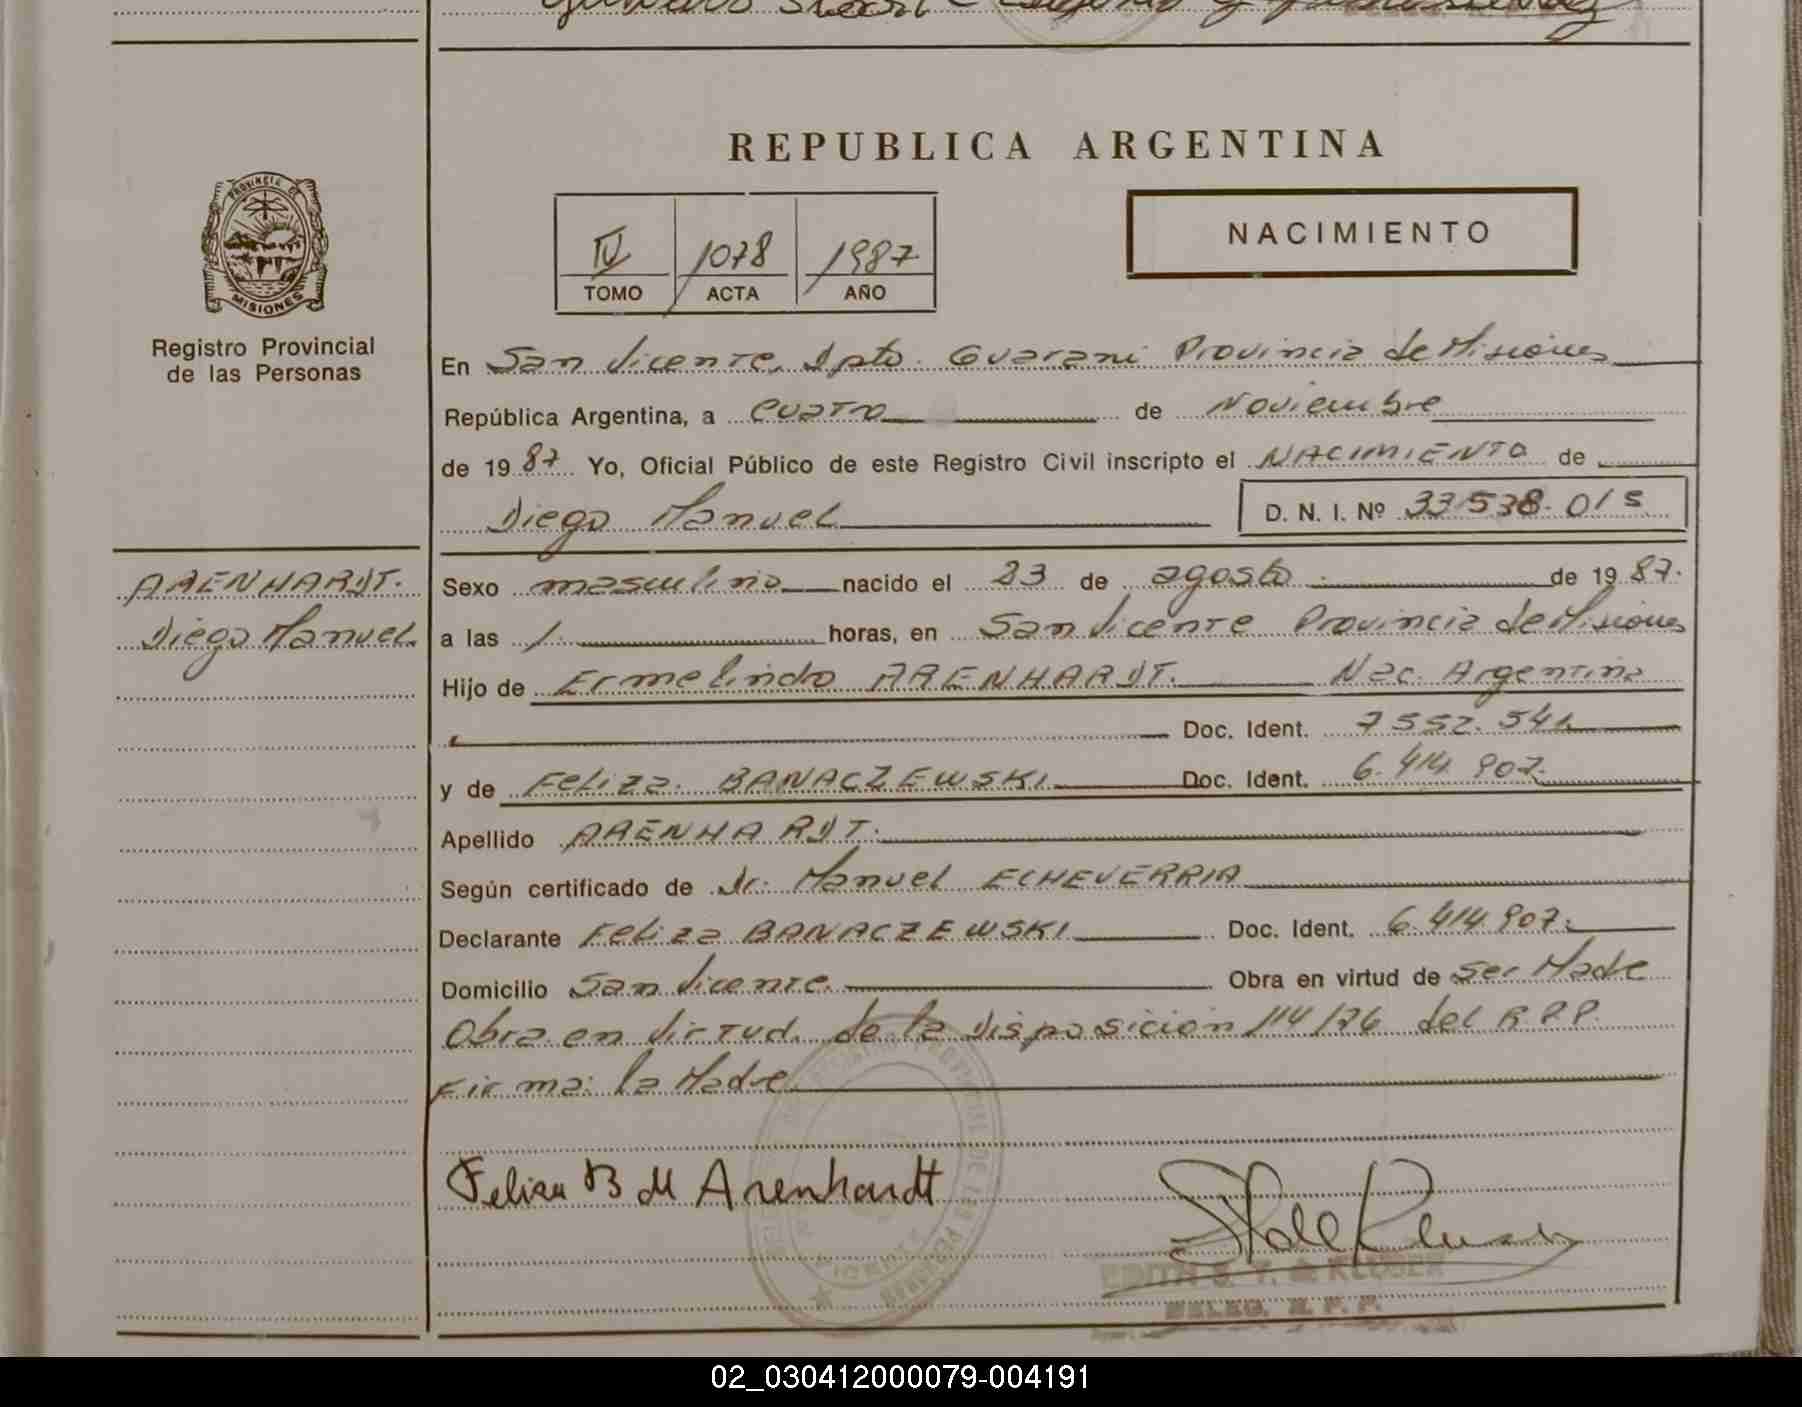 REPUBLICA ARGENTINA
PROVINCIA DE
MISIONES
Registro Provincial
de las Personas
IV 1078 1987
TOMO ACTA AÑO
NACIMIENTO
En San Vicente, Dpto. Guarani Provincia de Misiones
República Argentina, a cuatro de Noviembre
de 1987 Yo, Oficial Público de este Registro Civil inscripto el NACIMIENTO de
Diego Manuel D. N. I. Nº 33538.015
ARENHARDT.
Diego Manuel.
Sexo masculino nacido el 23 de agosto de 1987.
a las 1. horas, en San Vicente Provincia de Misiones
Hijo de Ermelindo ARENHARDT. Nac. Argentina
Doc. Ident. 7552.541
y de Feliza. BANACZEWSKI Doc. Ident. 6.414.907.
Apellido ARENHARDT.
Según certificado de Dr. Manuel ECHEVERRIA
Declarante Feliza BANACZEWSKI Doc. Ident. 6.414.907.
Domicilio San Vicente. Obra en virtud de ser Madre
Obra en virtud de la Disposicion 114/76 del R.P.P.
Firma: la Madre.
Felisa B M Arenhardt
EDITH S. T. de KLUBER
DELEG. R. P. P.
02_030412000079-004191